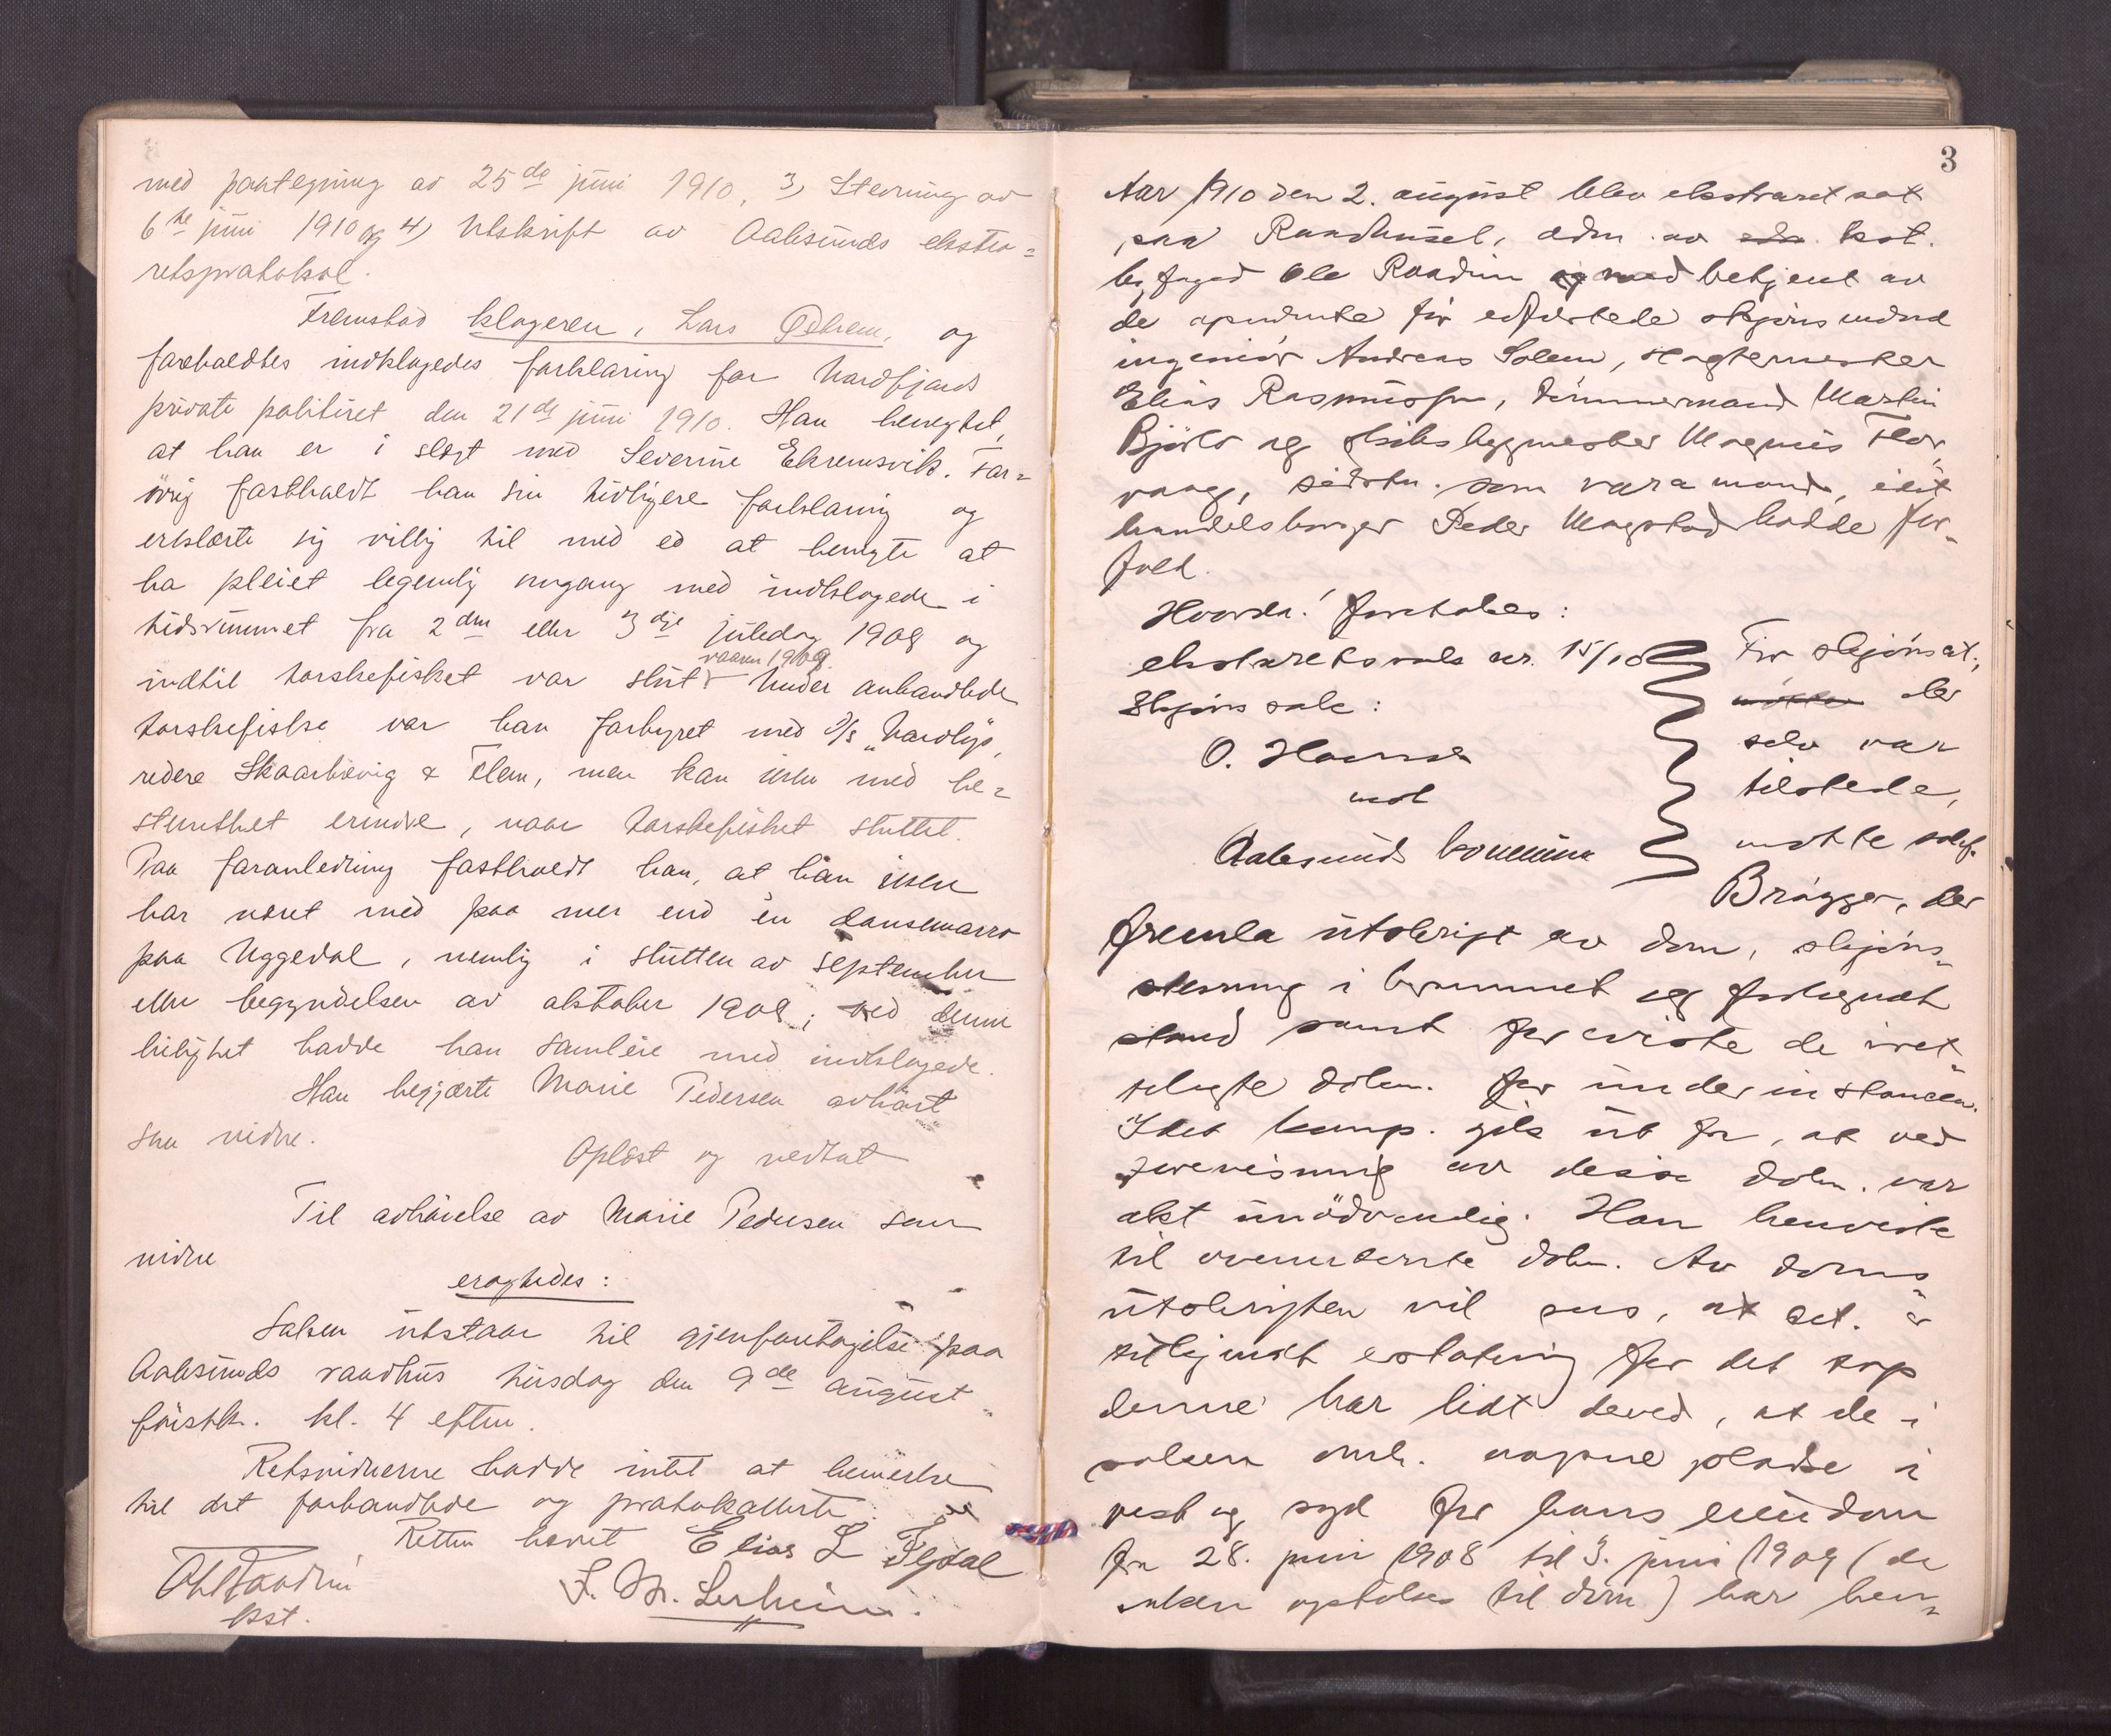 med paategning av 25de juni 1910, 3) Stevning av
6te juni 1910 og 4) Utskrift av Aalesunds ekstra=
retsprotokol.
Fremstod klageren, Lars og
foreholdtes indklagedes forklaring for Nordfjords
private politiret den 21de juni 1910. Han benegtet,
at han er i slegt med Severine Ekremsvik. For=
øvrig fastholdt han sin tidligere forklaring og
erklærte sig villig til med ed at benegte at
ha pleiet legemlig omgang med indklagede i
tidsrummet fra 2den eller 3dje juledag 1908 og
vaaren 1909.
indtil torskefisket var slut. Under omhandlede
torskefiske var han forhyret med D/S „Nordlys",
redere Skaarbrevig & Flem, men kan ikke med be=
stemthet erindre, naar torskefisket sluttet.
Paa foranledning fastholdt han, at han ikke
har været med paa mer end én dansemarro
paa Uggedal, nemlig i slutten av september
eller begyndelsen av oktober 1908; ved denne
leilighet hadde han samleie med indklagede.
Han begjærte Marie Pedersen avhørt
som vidne.
Oplæst og vedtat
Til avhørelse av Marie Pedersen som
vidne
eragtedes:
Saken utstaar til gjenforetagelse paa
Aalesunds raadhus tirsdag den 9de august
førstk. kl. 4 efterm.
Retsvidnerne hadde intet at bemerke
til det forhandlede og protokollerte.
Retten hævet Elias L Fljdal
Ole Raadim
kst.
3
Aar 1910 den 2. august blev ekstraret sat
paa Raadhuset, adm. av edn. kst.
byfoged Ole Raadim og med betjent av
de opnævnte før edfæstede skjønsmænd
ingeniør Andreas Solem, slagtermester
Elias Rasmussen, tømmermand Martin
Bjørlo og skibsbygmester Magnus Flor,
vaag, sidstn. som varamand, idet
handelsborger Peder Magstad hadde for=
fald.
Hvorda! foretokes:
ekstraretssak nr. 15/10
Skjøns sak:
O. Hovnd
mot
Aalesunds kommune
For skjønsat.,
møtte der
selv var
tilstede,
møtte sakf.
Brügger, der
fremla utskrift av dom, skjøns=
stevning i brummet og forkyndt
stand samt foreviste de i ret
telagte dokm. for underinstancen.
Idet komp. gik ut fra, at ved
forevisning av disse dokm. var
akt unødvendig. Han henviste
til ovennævnte dokm. Av doms
utskriften vil sees, at det. er
tilkjendt erstatning for det tap
denne har lidt derved, at de i
saken omh. aapne pladse i
vest og syd for hans eiendom
fra 28. juni 1908 til 3. juni 1909 (da
saken optokes til dom) har hen=